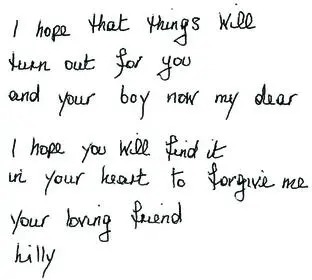 I hope that things will
turn out for you
and your boy now my dear
I hope you will find it
in your heart to forgive me
your loving friend
Lilly